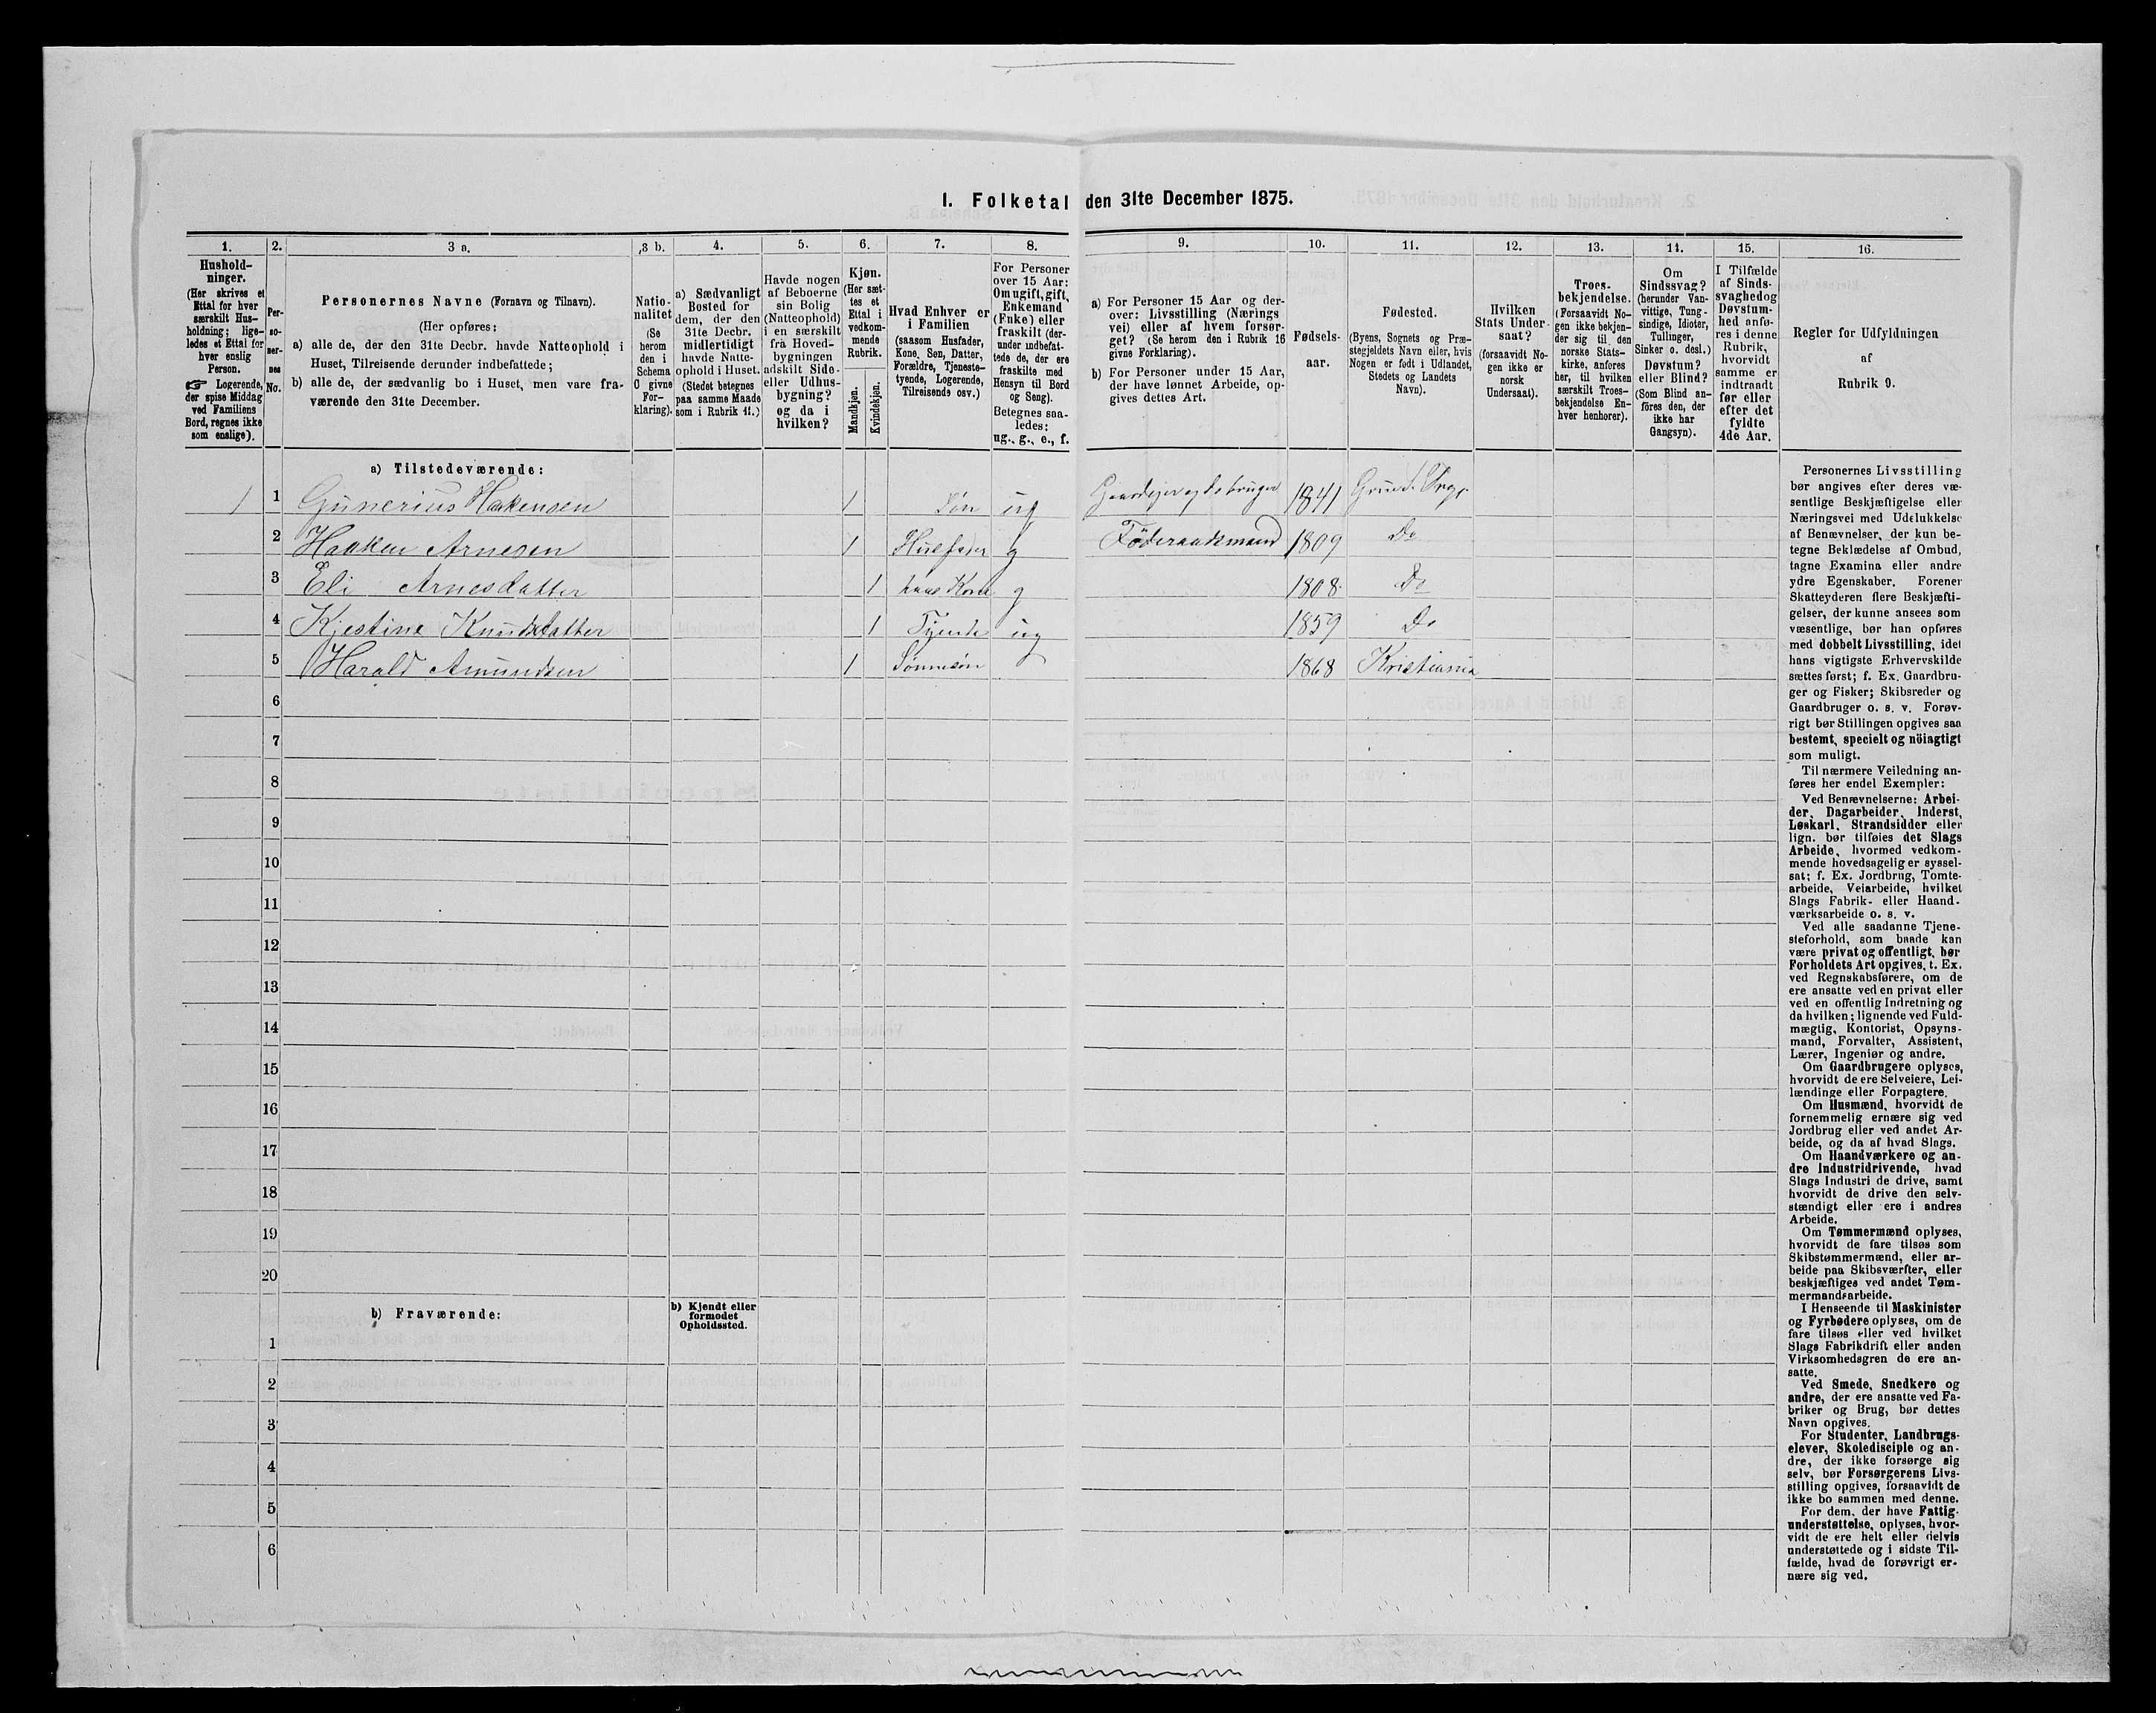 I. Folketal den 31te December 1875.
1.
Hushold-
ninger.
(Her skrives et
Ettal for hver
særskilt Hus-
holdning; lige-
ledes et Ettal for
hver enslig
Person.
☞ Logerende,
der spise Middag
ved Familiens
Bord, regnes ikke
som enslige).
2.
Per-
so-
ner-
nes
No.
3 a.
Personernes Navne (Fornavn og Tilnavn).
(Her opføres:
a) alle de, der den 31te Decbr. havde Natteophold i
Huset, Tilreisende derunder indbefattede;
b) alle de, der sædvanlig bo i Huset, men vare fra-
værende den 31te December.
3 b.
Natio-
nalitet
(Se
herom
den i
Schema
O givne
For-
klaring).
4.
a) Sædvanligt
Bosted for
dem, der den
31te Decbr.
midlertidigt
havde Natte-
ophold i Huset.
(Stedet betegnes
paa samme Maade
som i Rubrik 11.)
5.
Havde nogen
af Beboerne
sin Bolig
(Natteophold)
i en særskilt
fra Hoved-
bygningen
adskilt Side-
eller Udhus-
bygning?
og da i
hvilken?
6.
Kjøn.
(Her sæt-
tes et
Ettal i
vedkom-
mende
Rubrik.
Mandkjøn.
Kvindekjøn.
7.
Hvad Enhver er
i Familien
(saasom Husfader,
Kone, Søn, Datter,
Forældre, Tjeneste-
tyende, Logerende,
Tilreisende osv.)
8.
For Personer
over 15 Aar:
Om ugift, gift,
Enkemand
(Enke) eller
fraskilt (der-
under indbefat-
tede de, der ere
fraskilte med
Hensyn til Bord
og Seng).
Betegnes saa-
ledes:
ug., g., e., f.
9.
a) For Personer 15 Aar og der-
over: Livsstilling (Nærings
vei) eller af hvem forsør-
get? (Se herom den i Rubrik 16
givne Forklaring).
b) For Personer under 15 Aar,
der have lønnet Arbeide, op-
gives dettes Art.
10.
Fødsels-
aar.
11.
Fødested.
(Byens, Sognets og Præ-
stegjeldets Navn eller, hvis
Nogen er født i Udlandet,
Stedets og Landets
Navn).
12.
Hvilken
Stats Under-
saat?
(forsaavidt No-
gen ikke er
norsk
Undersaat).
13.
Troes-
bekjendelse.
(Forsaavidt No-
gen ikke bekjen-
der sig til den
norske Stats-
kirke, anføres
her, til hvilken
særskilt Troes-
bekjendelse En-
hver henhører).
14.
Om
Sindssvag?
(herunder Van-
vittige, Tung-
sindige, Idioter,
Tullinger,
Sinker o. desl.)
Døvstum?
eller Blind?
(Som Blind an-
føres den, der
ikke har
Gangsyn).
15.
I Tilfælde
af Sinds-
svaghed og
Døvstum-
hed anfø-
res i denne
Rubrik,
hvorvidt
samme er
indtraadt
før eller
efter det
fyldte
4de Aar.
16.
Regler for Udfyldningen
af
Rubrik 9.
a) Tilstedeværende:
1 1 Gunerius Haakensen 1 Søn ug Gaardejer og do bruger 1841 Grue
2 Haaken Arnesen 1 Husfader g Föderaadsmand 1809 Do
3 Eli Arnesdatter 1 hans Kone g 1808 Do
4 Kjestine Knudsdatter 1 Tyende ug 1859 Do
5 Harald Amundsen 1 Sönnesön 1868 Kristiania
6
7
8
9
10
11
12
13
14
15
16
17
18
19
20
b) Fraværende:
b) Kjendt eller
formodet
Opholdssted.
1
2
3
4
5
6
Personernes Livsstilling
bør angives efter deres væ-
sentlige Beskjæftigelse eller
Næringsvei med Udelukkelse
af Benævnelser, der kun be-
tegne Beklædelse af Ombud,
tagne Examina eller andre
ydre Egenskaber. Forener
Skatteyderen flere Beskjæfti-
gelser, der kunne ansees som
væsentlige, bør han opføres
med dobbelt Livsstilling, idet
hans vigtigste Erhvervskilde
sættes først; f. Ex. Gaardbru-
ger og Fisker; Skibsreder og
Gaardbruger o. s. v. Forøv-
rigt bør Stillingen opgives saa
bestemt, specielt og nöiagtigt
som muligt.
Til nærmere Veiledning an-
føres her endel Exempler:
Ved Benævnelserne: Arbei-
der, Dagarbeider, Inderst,
Løskarl, Strandsidder eller
lign. bør tilføies det Slags
Arbeide, hvormed vedkom-
mende hovedsagelig er syssel-
sat; f. Ex. Jordbrug, Tomte-
arbeide, Veiarbeide, hvilket
Slags Fabrik- eller Haand-
værksarbeide o. s. v.
Ved alle saadanne Tjene-
steforhold, som baade kan
være privat og offentligt, bør
Forholdets Art opgives, t. Ex.
ved Regnskabsførere, om de
ere ansatte ved en privat eller
ved en offentlig Indretning og
da hvilken; lignende ved Fuld-
mægtig, Kontorist, Opsyns-
mand, Forvalter, Assistent,
Lærer, Ingeniør og andre.
Om Gaardbrugere oplyses,
hvorvidt de ere Selveiere, Lei-
lændinge eller Forpagtere.
Om Husmænd, hvorvidt de
fornemmelig ernære sig ved
Jordbrug eller ved andet Ar-
beide, og da af hvad Slags.
Om Haandværkere og an-
dre Industridrivende, hvad
Slags Industri de drive, samt
hvorvidt de drive den selv-
stændigt eller ere i andres
Arbeide.
Om Tømmermænd oplyses,
hvorvidt de fare tilsøs som
Skibstømmermænd, eller ar-
beide paa Skibsværfter, eller
beskjæftiges ved andet Tøm-
mermandsarbeide.
I Henseende til Maskinister
og Fyrbødere oplyses, om de
fare tilsøs eller ved hvilket
Slags Fabrikdrift eller anden
Virksomhedsgren de ere an-
satte.
Ved Smede, Snedkere og
andre, der ere ansatte ved Fa-
briker og Brug, bør dettes
Navn opgives.
For Studenter, Landbrugs-
elever, Skoledisciple og an-
dre, der ikke forsørge sig
selv, bør Forsørgerens Livs-
stilling opgives, forsaavidt de
ikke bo sammen med denne.
For dem, der have Fattig-
understøttelse, oplyses, hvor-
vidt de ere helt eller delvis
understøttede og i sidste Til-
fælde, hvad de forøvrigt er-
nære sig ved.